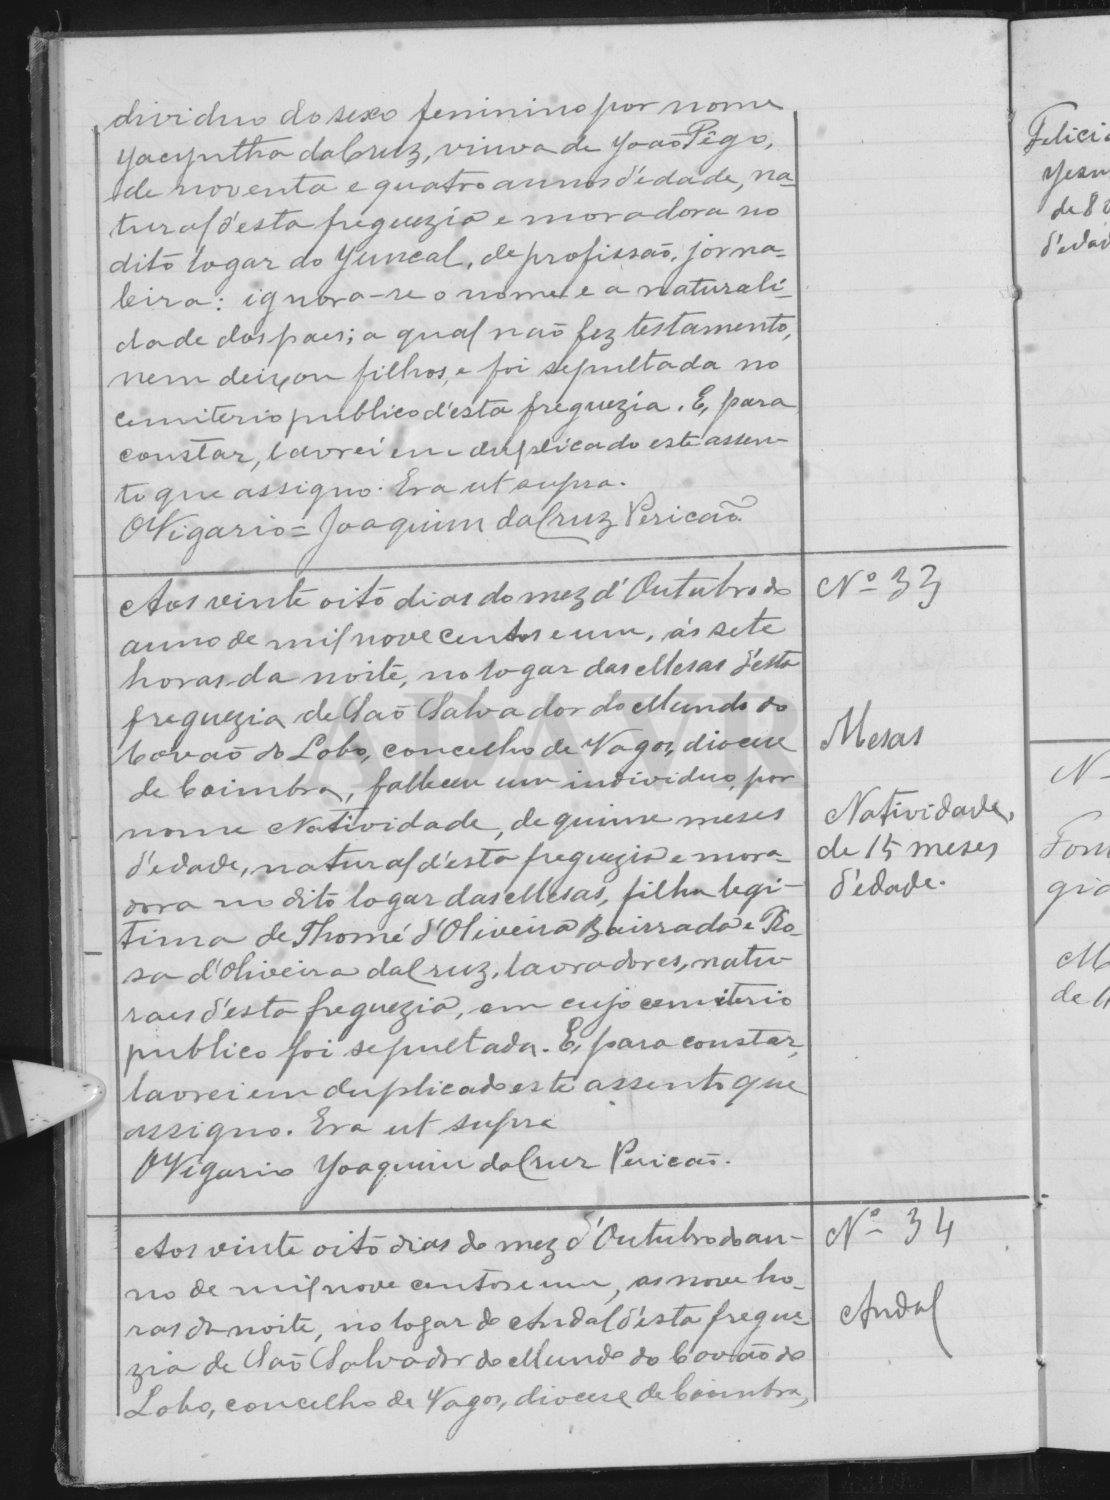 dividuo do sexo feminino por nome
Jacyntha da Cruz, viuva de João Pêgo,
de noventa e quatro annos d'edade, na-
tural d'esta freguezia e moradora no
dito logar do Juncal, de profissão, jorna-
leira: ignora-se o nome e a naturali-
dade dos paes; a qual não fez testamento,
nem deixou filhos, e foi sepultada no
cemiterio publico d'esta freguezia. E, para
constar, lavrei em duplicado este assen-
to que assigno. Era ut supra.
O Vigario = Joaquim da Cruz Pericão.
Aos vinte oito dias do mez d'Outubro do
anno de mil nove centos e um, ás sete
horas da noite, no logar das Mesas d'esta
freguezia de São Salvador do Mundo do
Covão do Lobo, concelho de Vagos, diocese
de Coimbra, falleceu um individuo, por
nome Natividade, de quinze meses
d'edade, natural d'esta freguezia e mora-
dora no dito logar das Mesas, filha legi-
tima de Thomé d'Oliveira Bairrada e Ro-
sa d'Oliveira da Cruz, lavradores, natu-
raes d'esta freguezia, em cujo cemiterio
publico foi sepultada. E, para constar,
lavrei em duplicado este assento que
assigno. Era ut supra
O Vigario Joaquim da Cruz Pericão.
Aos vinte oito dias do mez d'Outubro do an-
no de mil nove centos e um, as nove ho-
ras da noite, no logar do Andal d'esta fregue-
zia de São Salvador do Mundo do Covão do
Lobo, concelho de Vagos, diocese de Coimbra,
Nº 33
Mesas
Natividade,
de 15 meses
d'edade.
Nº 34
Andal
Felici
de 8
d'edad
N
gia
de
ADAVR